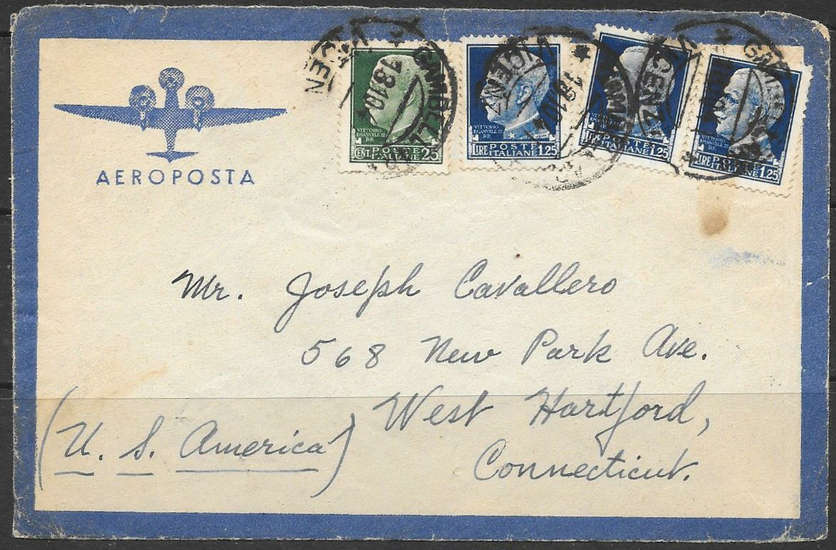 AEROPOSTA
VITTORIO EMANUELE III RE
CENT. POSTE ITALIANE 25
LIRE POSTE ITALIANE 1.25
POSTE ITALIANE 1.25
LIRE POSTE ITALIANE 1.25
Mr. Joseph Cavallero
568 New Park Ave.
West Hartford,
(U. S. America)
Connecticut.